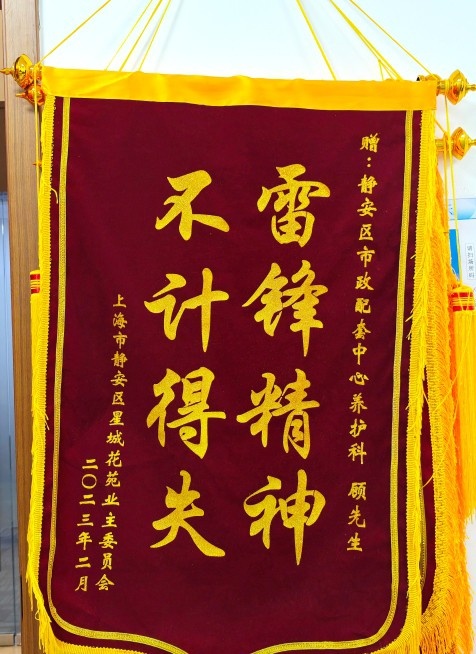 赠：静安区市政配套中心养护科 顾先生
雷锋精神
不计得失
上海市静安区星城花苑业主委员会
二〇二三年二月